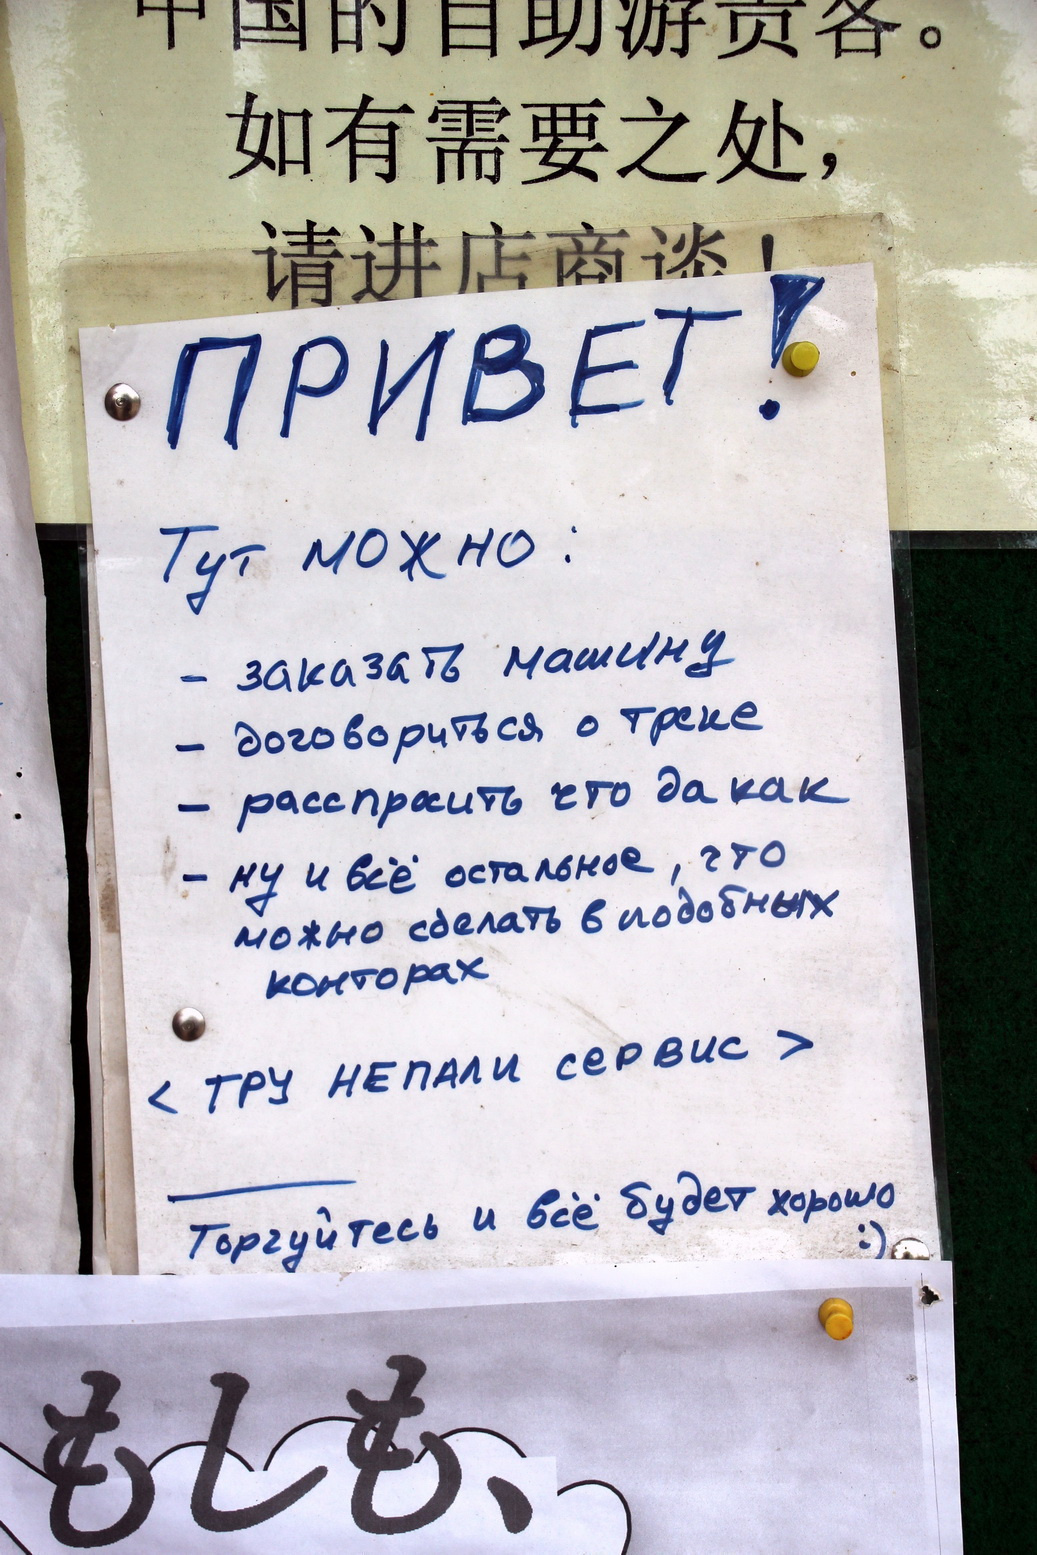 中国的自助游贵客。
如有需要之处，
请进店商谈！
ПРИВЕТ!
Тут можно:
- заказать машину
- договориться о треке
- расспросить что да как
- ну и всё остальное, что
можно сделать в подобных
конторах
< ТРУ НЕПАЛИ СЕРВИС >
Торгуйтесь и всё будет хорошо
:)
もしも、